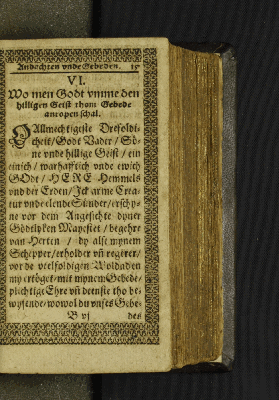 Andachten vnde Gebeden.
VI.
Wo men Godt vmme den
hilligen Geist thom Gebede
anropen schal.
O Allmechtigeste Drefoldi-
cheit/Godt Vader/ Sö-
ne vnde hillige Geist/ ein
einich/ warhafftich vnde ewich
GOdt/ HERE Hemmels
vnd der Erden/ Ick arme Crea-
tur vnde elende Sünder/erschy-
ne vor dem Angesichte dyner
Gödtlyken Mayestet/ begehre
van Herten / dy alse mynem
Schepper/erholder vñ regerer/
vor de veelfoldigen Woldaden
my ertöget/mit mynem Gebede
plichtige Ehre vñ deenste tho be-
wysende/wowol du vnses Gebe-
B vj des